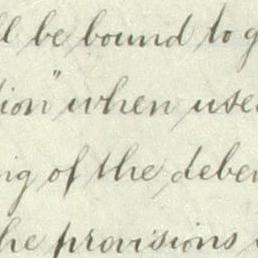 ll be bound to g
tion" when used
ng of the deben
he provisions